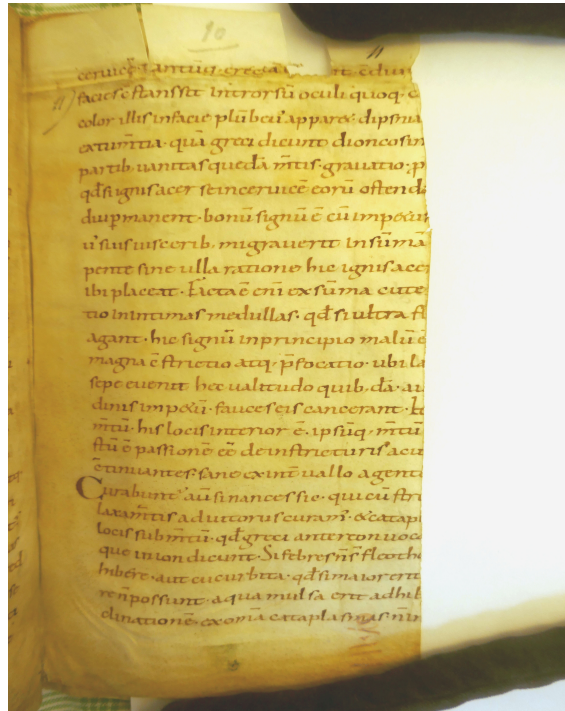 10
11
facies e stanssit introrsū oculi quoq· c
color illis in facie plūbeu' apparet· dipsnia
partib· uanitas quedā mtis· grauatio· p
qđ si ignis acer se in ceruicē eorū ostenda
diu pmanent· bonū signū ē cū impetū
ui' suis uiscerib· migrauerit in sūmā
pente sine ulla ratione hic ignis acer
ibi placeat· Facta ē eni ex sūma cute
tio in intimas medullas· qđ si ultra
agant· hic signū in principio malū ē
magna ē strictio atq· pfocatio· ubi la
sepe euenit hec ualitudo quib· dā· au
dinis impetū· fauces eis cancerant·
mtū· his locis interior ē· ipsūq· mtū
stū ē passionē eē de instricturis acu
etinuantes· sane ex interuallo agenti
Curabunt' aū sinances sic· qui cū stri
laxamtis adiutoriis curant'· & catapl
locis submtū· qđ greci antereon uoc
que inion dicunt· Si febres
hibere· aut cucurbita· qđ si maior erit
ren possunt· aqua mulsa erit adhib
clinatione· ex omā cataplasmas